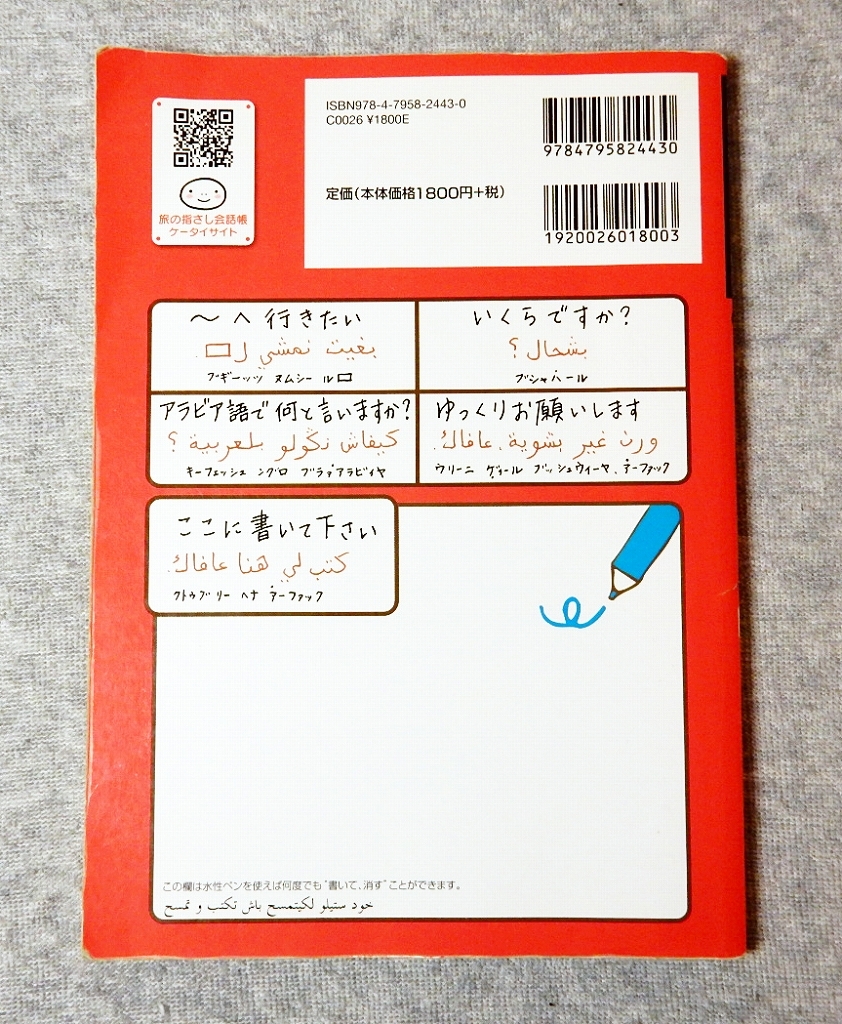 ISBN978-4-7958-2443-0
C0026 ¥1800E
9784795824430
定価(本体価格1800円+税)
1920026018003
旅の指さし会話帳
ケータイサイト
〜へ行きたい
بغيت نمشي ل□.
ブギーッツ ヌムシー ル□
いくらですか?
بشحال؟
ブシャハール
アラビア語で何と言いますか?
كيفاش نݣولو بلعربية؟
キーフェッシュ ングロ ブラアラビィヤ
ゆっくりお願いします
غير بشوية، عافاك.
ウリーニ ゲィール ブッシュウィーヤ、アーファック
ここに書いて下さい
كتب لي هنا عافاك.
クトゥブ リー ヘナ アーファック
この欄は水性ペンを使えば何度でも"書いて、消す"ことができます。
خود ستيلو لكيتمسح باش تكتب و تمسح